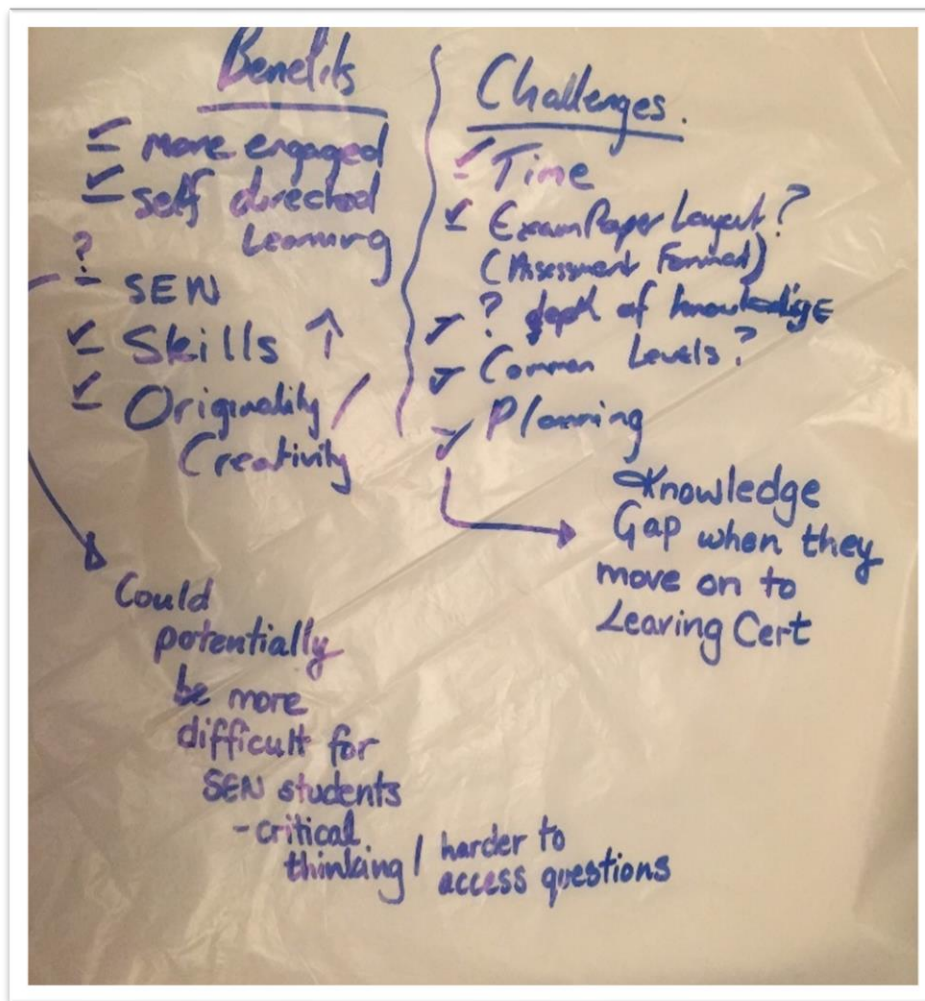 Benefits
- more engaged
- self directed
Learning
?
- SEN
- Skills ↑
- Originality /
Creativity
Could
potentially
be more
difficult for
SEN students
- critical
thinking /
harder to
access questions
Challenges.
- Time
- Exam Paper Layout?
(Assessment Format)
? depth of knowledge
Common Levels?
Planning
Knowledge
Gap when they
move on to
Leaving Cert